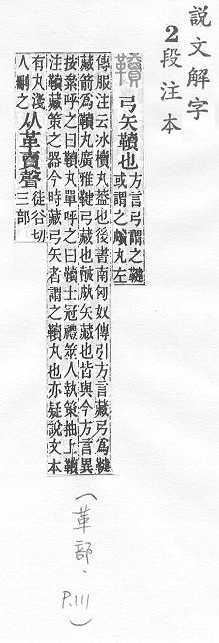 説文解字
2段注本
韇 弓矢韇也 方言弓謂之鞬
或謂之丸左
傳服注云冰犢丸葢也後書南匈奴傳引方言藏弓為鞬
藏箭為韇丸廣雅鞬弓藏也矢藏也皆與今方言異
按絫呼之曰韇丸單呼之曰韇士冠禮筮人執筴抽上韇
注韇藏筴之器今時藏弓矢者謂之韇丸也亦疑說文本
有丸淺
人刪之
从革賣聲
徒谷切
三部
(革部.P.111)